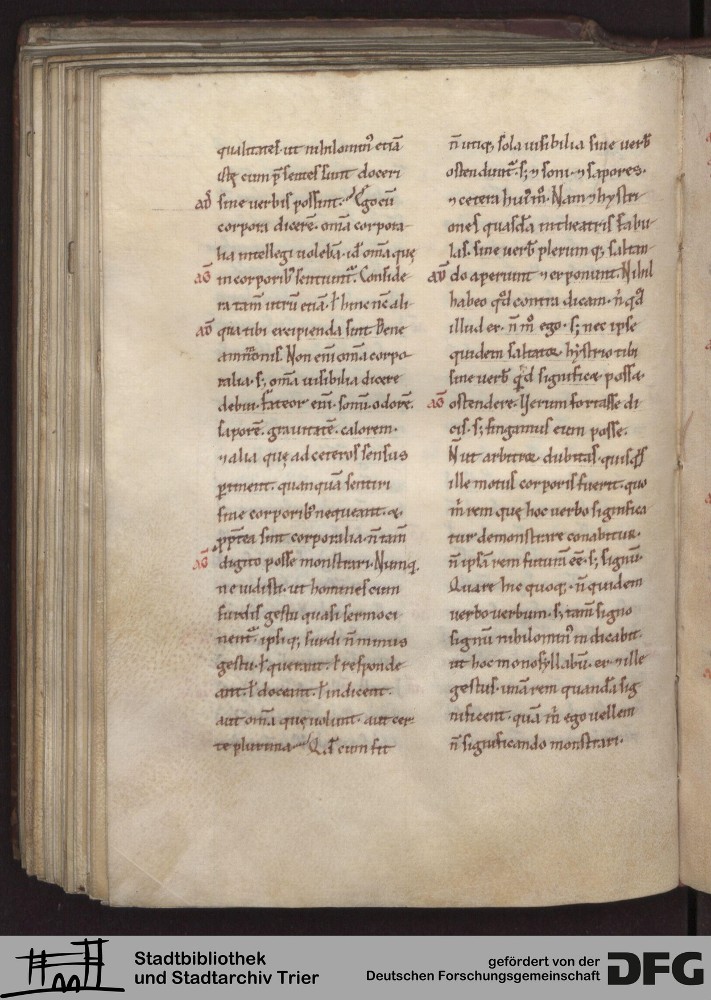 qualitates. ut nihilomin᷒ etiā
istę cum p̄sentes sunt doceri
aḋ sine verbis possint. Ego cū
corpora dicerē. om̄a corpora-
lia intellegi volebā. id om̄a quę
aḡ in corporib᷒ sentiunt᷒. Conside-
ra tam̄ utrū etiā. ł hinc n̄c ali-
aḋ qua tibi excipienda sint. Bene
ammonis. Non eni᷒ om̄a corpo-
ralia. s; om̄a visibilia dicere
debui. fateor eni᷒. sonū. odorē.
saporē. gravitatē. calorem.
⁊ alia quę ad ceteros sensus
ꝑtinent. quanquā sentiri
sine corporib᷒ nequeant. &
ꝓpt̄ea sint corporalia. n̄ tam̄
aḡ digito posse monstrari. Numq̄.
ne vidisti. ut homines cum
surdis gestu quasi sermoci
nent᷒. ipsiq; surdi n̄ minus
gestu. ł querant. ł responde
ant. ł doceant. ł indicent.
aut om̄a quę volunt. aut cer
te plurima. Qd̄ cum fit
n̄ utiq; sola visibilia sine verb̄
ostendunt᷒. s; ⁊ soni. ⁊ sapores.
⁊ cetera hui᷒m̊. Nam ⁊ hystri
ones quasdā in theatris fabu
las. sine verb̄ plerumq; saltan-
aḋ do aperiunt ⁊ exponunt. Nihil
habeo qd̄ contra dicam. n̄. qd̄
illud ex. n̄ m̊ ego. s; nec ipse
quidem saltator hystrio tibi
sine verb̄ qd̄ significet possit
aḡ ostendere. Verum fortasse di
cis. s; fingamus eum posse.
N̄ ut arbitror dubitas. quisq̄s
ille motus corporis fuerit. quo
m̄ rem quę hoc verbo significa
tur demonstrare conabitur.
n̄ ipsā rem futurā ēē. s; signū.
Quare hic quoq; n̄ quidem
verbo verbum. s; tam̄ signo
signū nihilomin᷒ indicabit.
ut hoc monosyllabū. ex. ⁊ ille
gestus. unā rem quandā sig
nificent. quā m̄ ego vellem
n̄ significando monstrari.
Stadtbibliothek
und Stadtarchiv Trier
gefördert von der
Deutschen Forschungsgemeinschaft
DFG